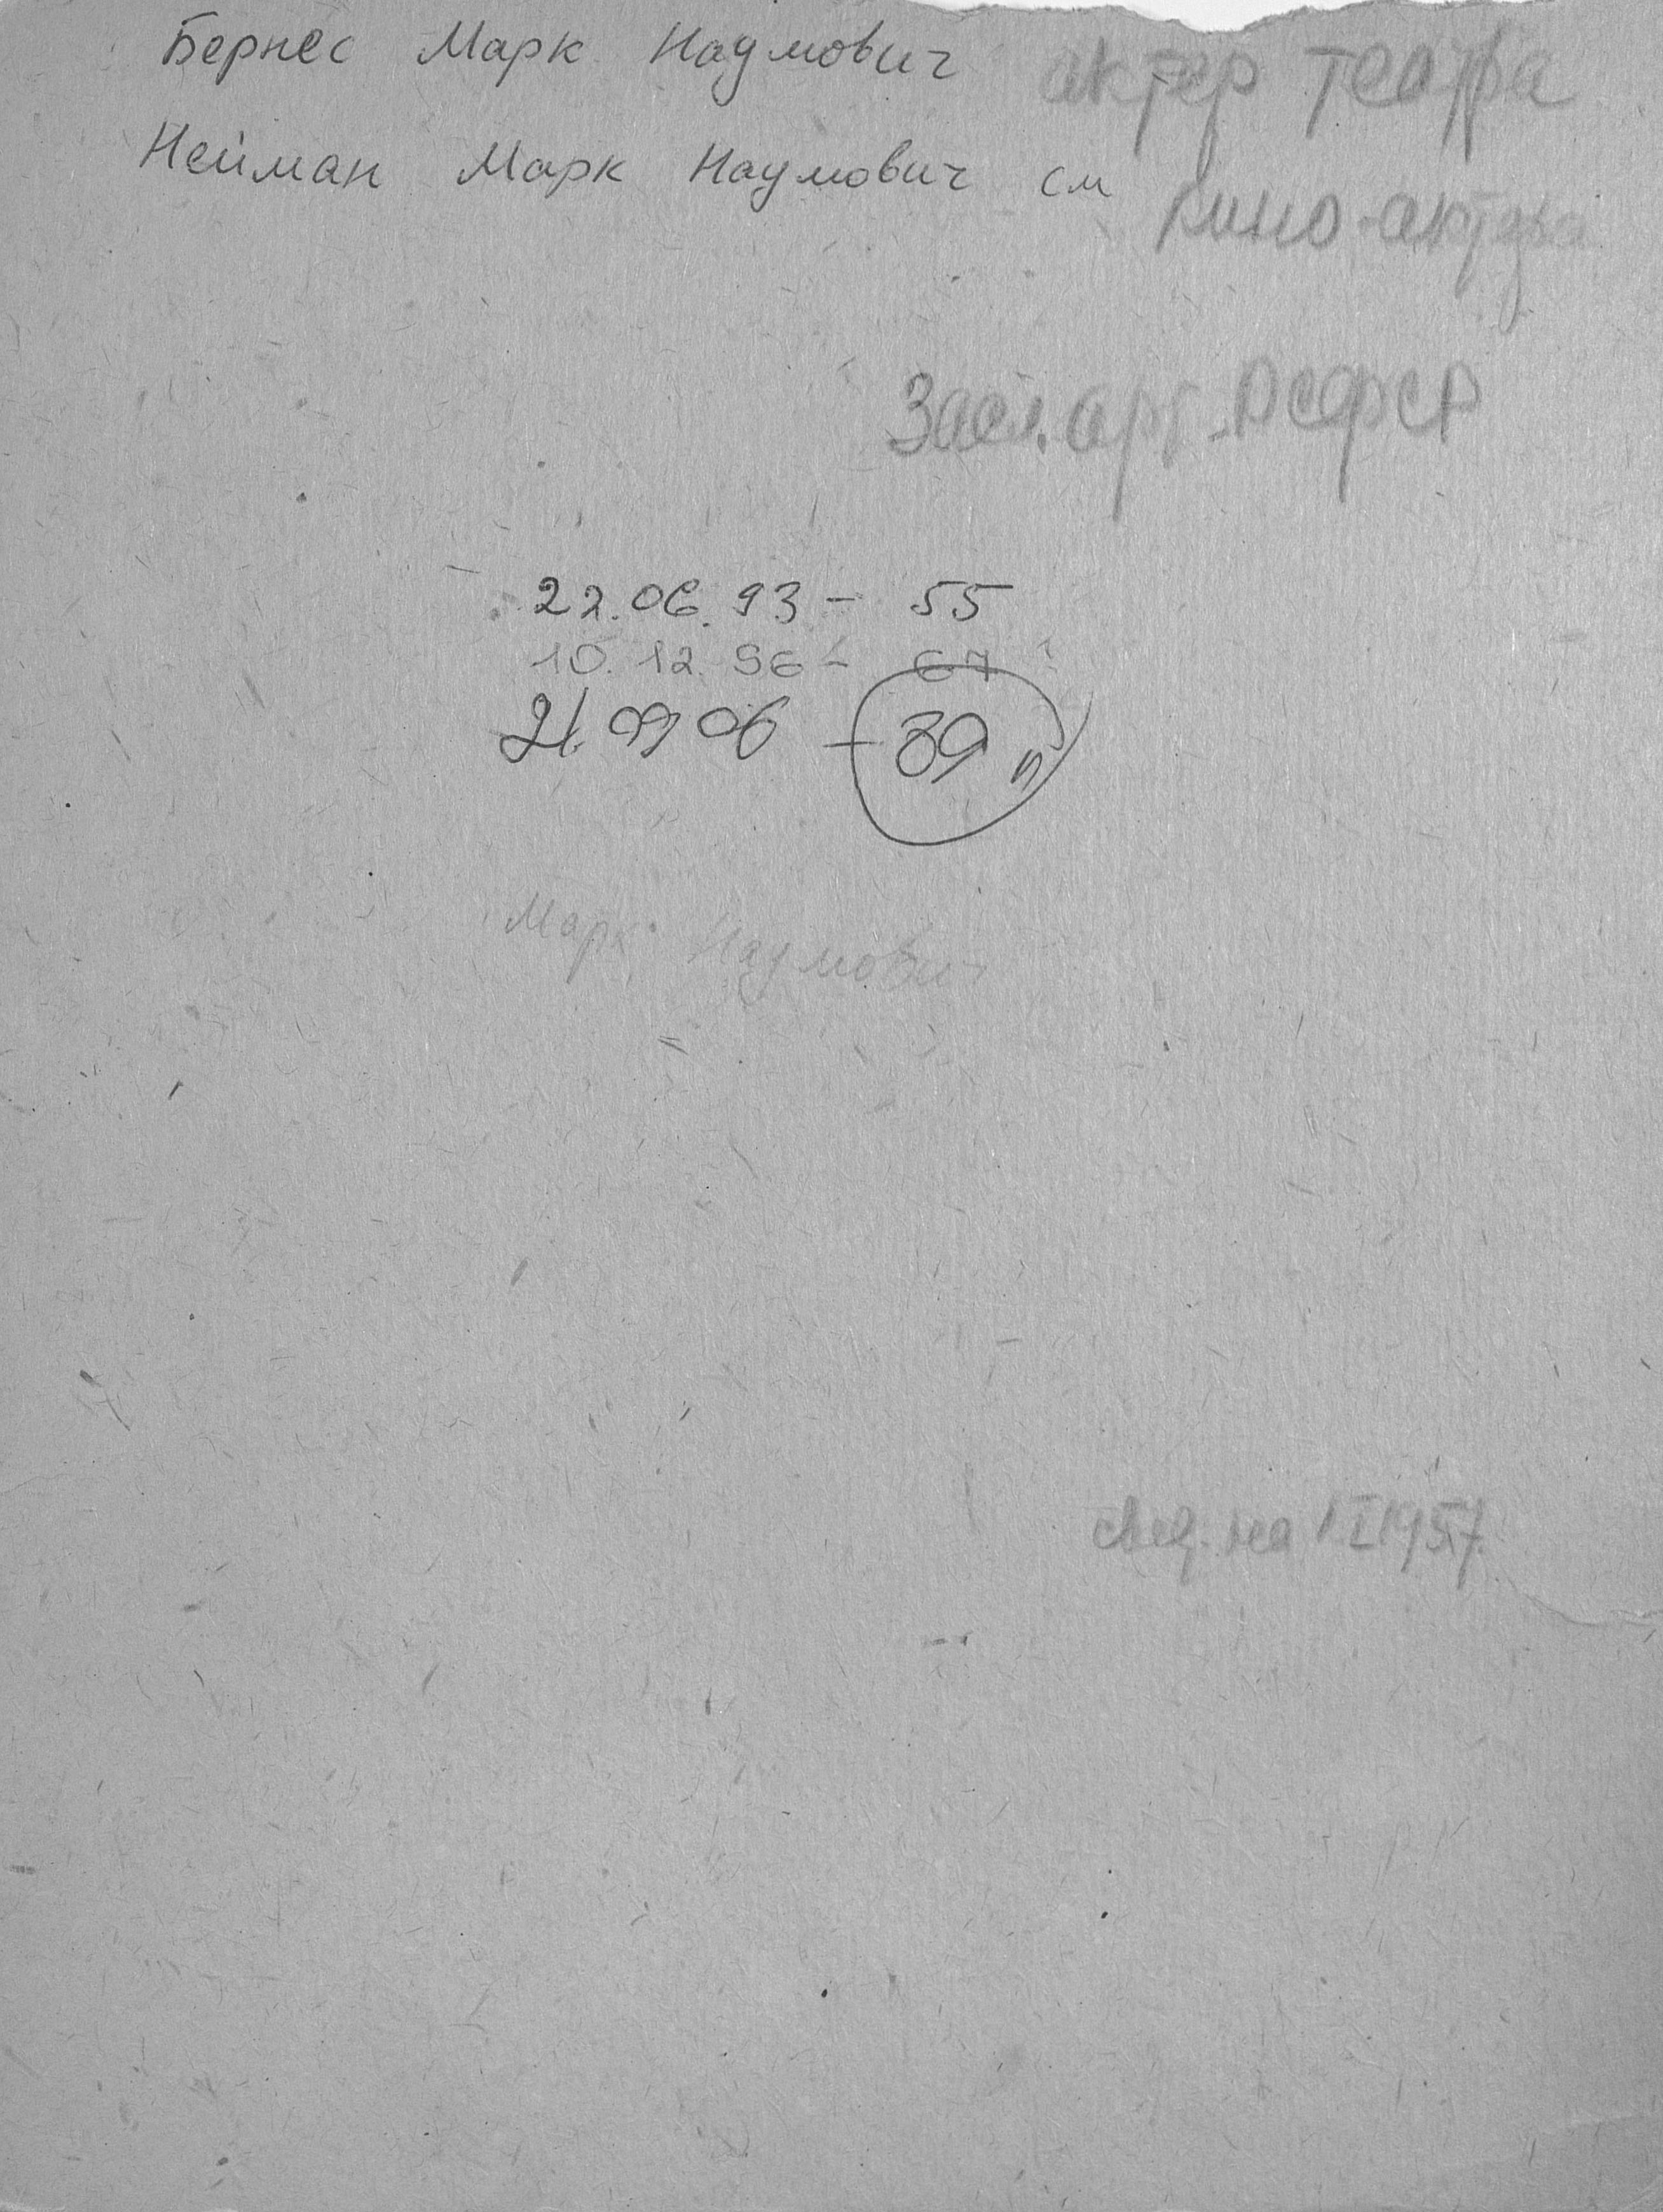 Бернес Марк Наумович актер театра
Нейман Марк Наумович см
кино-актера
Засл. арт. РСФСР
22.06.93 - 55
10.12.96 - 67
21.09.06 - 39
Марк Наумович
на 1 I 1957